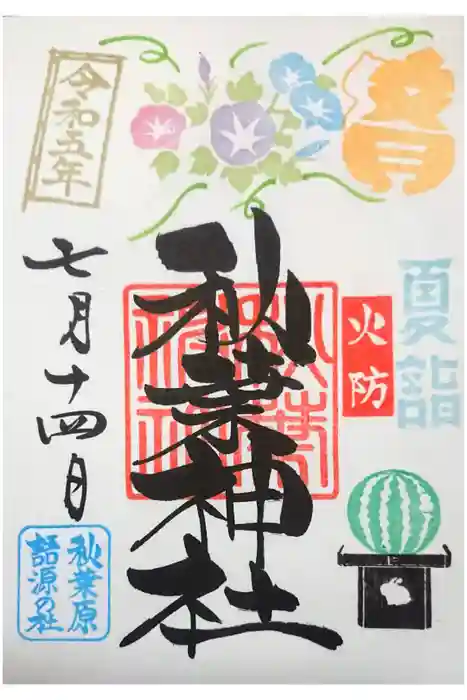 令和五年
夏詣
火防
秋葉神社
七月十四日
秋葉原
語源の社